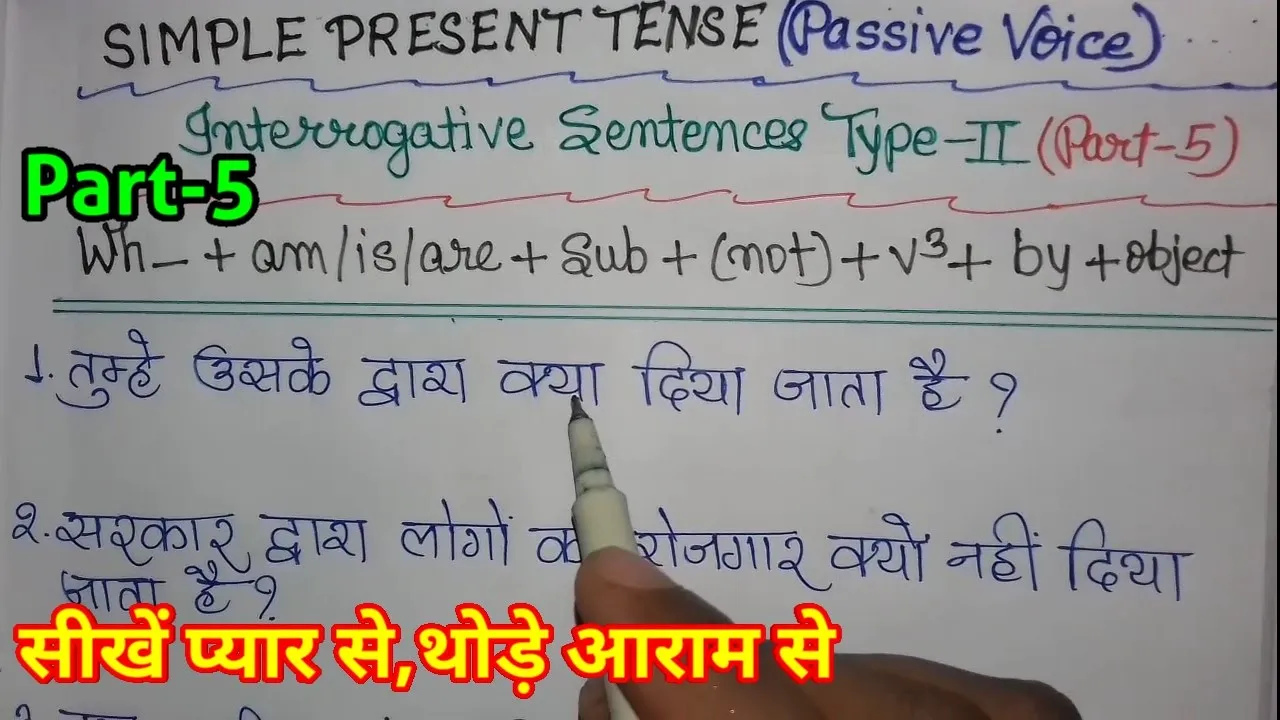 SIMPLE PRESENT TENSE (Passive Voice)
Interrogative Sentences Type-II (Part-5)
Part-5
Wh_ + am/is/are + Sub + (not) + V³ + by + object
1. तुम्हे उसके द्वारा क्या दिया जाता है ?
२. सरकार द्वारा लोगों रोजगार क्यों नहीं दिया
जाता है ?
सीखें प्यार से,थोड़े आराम से